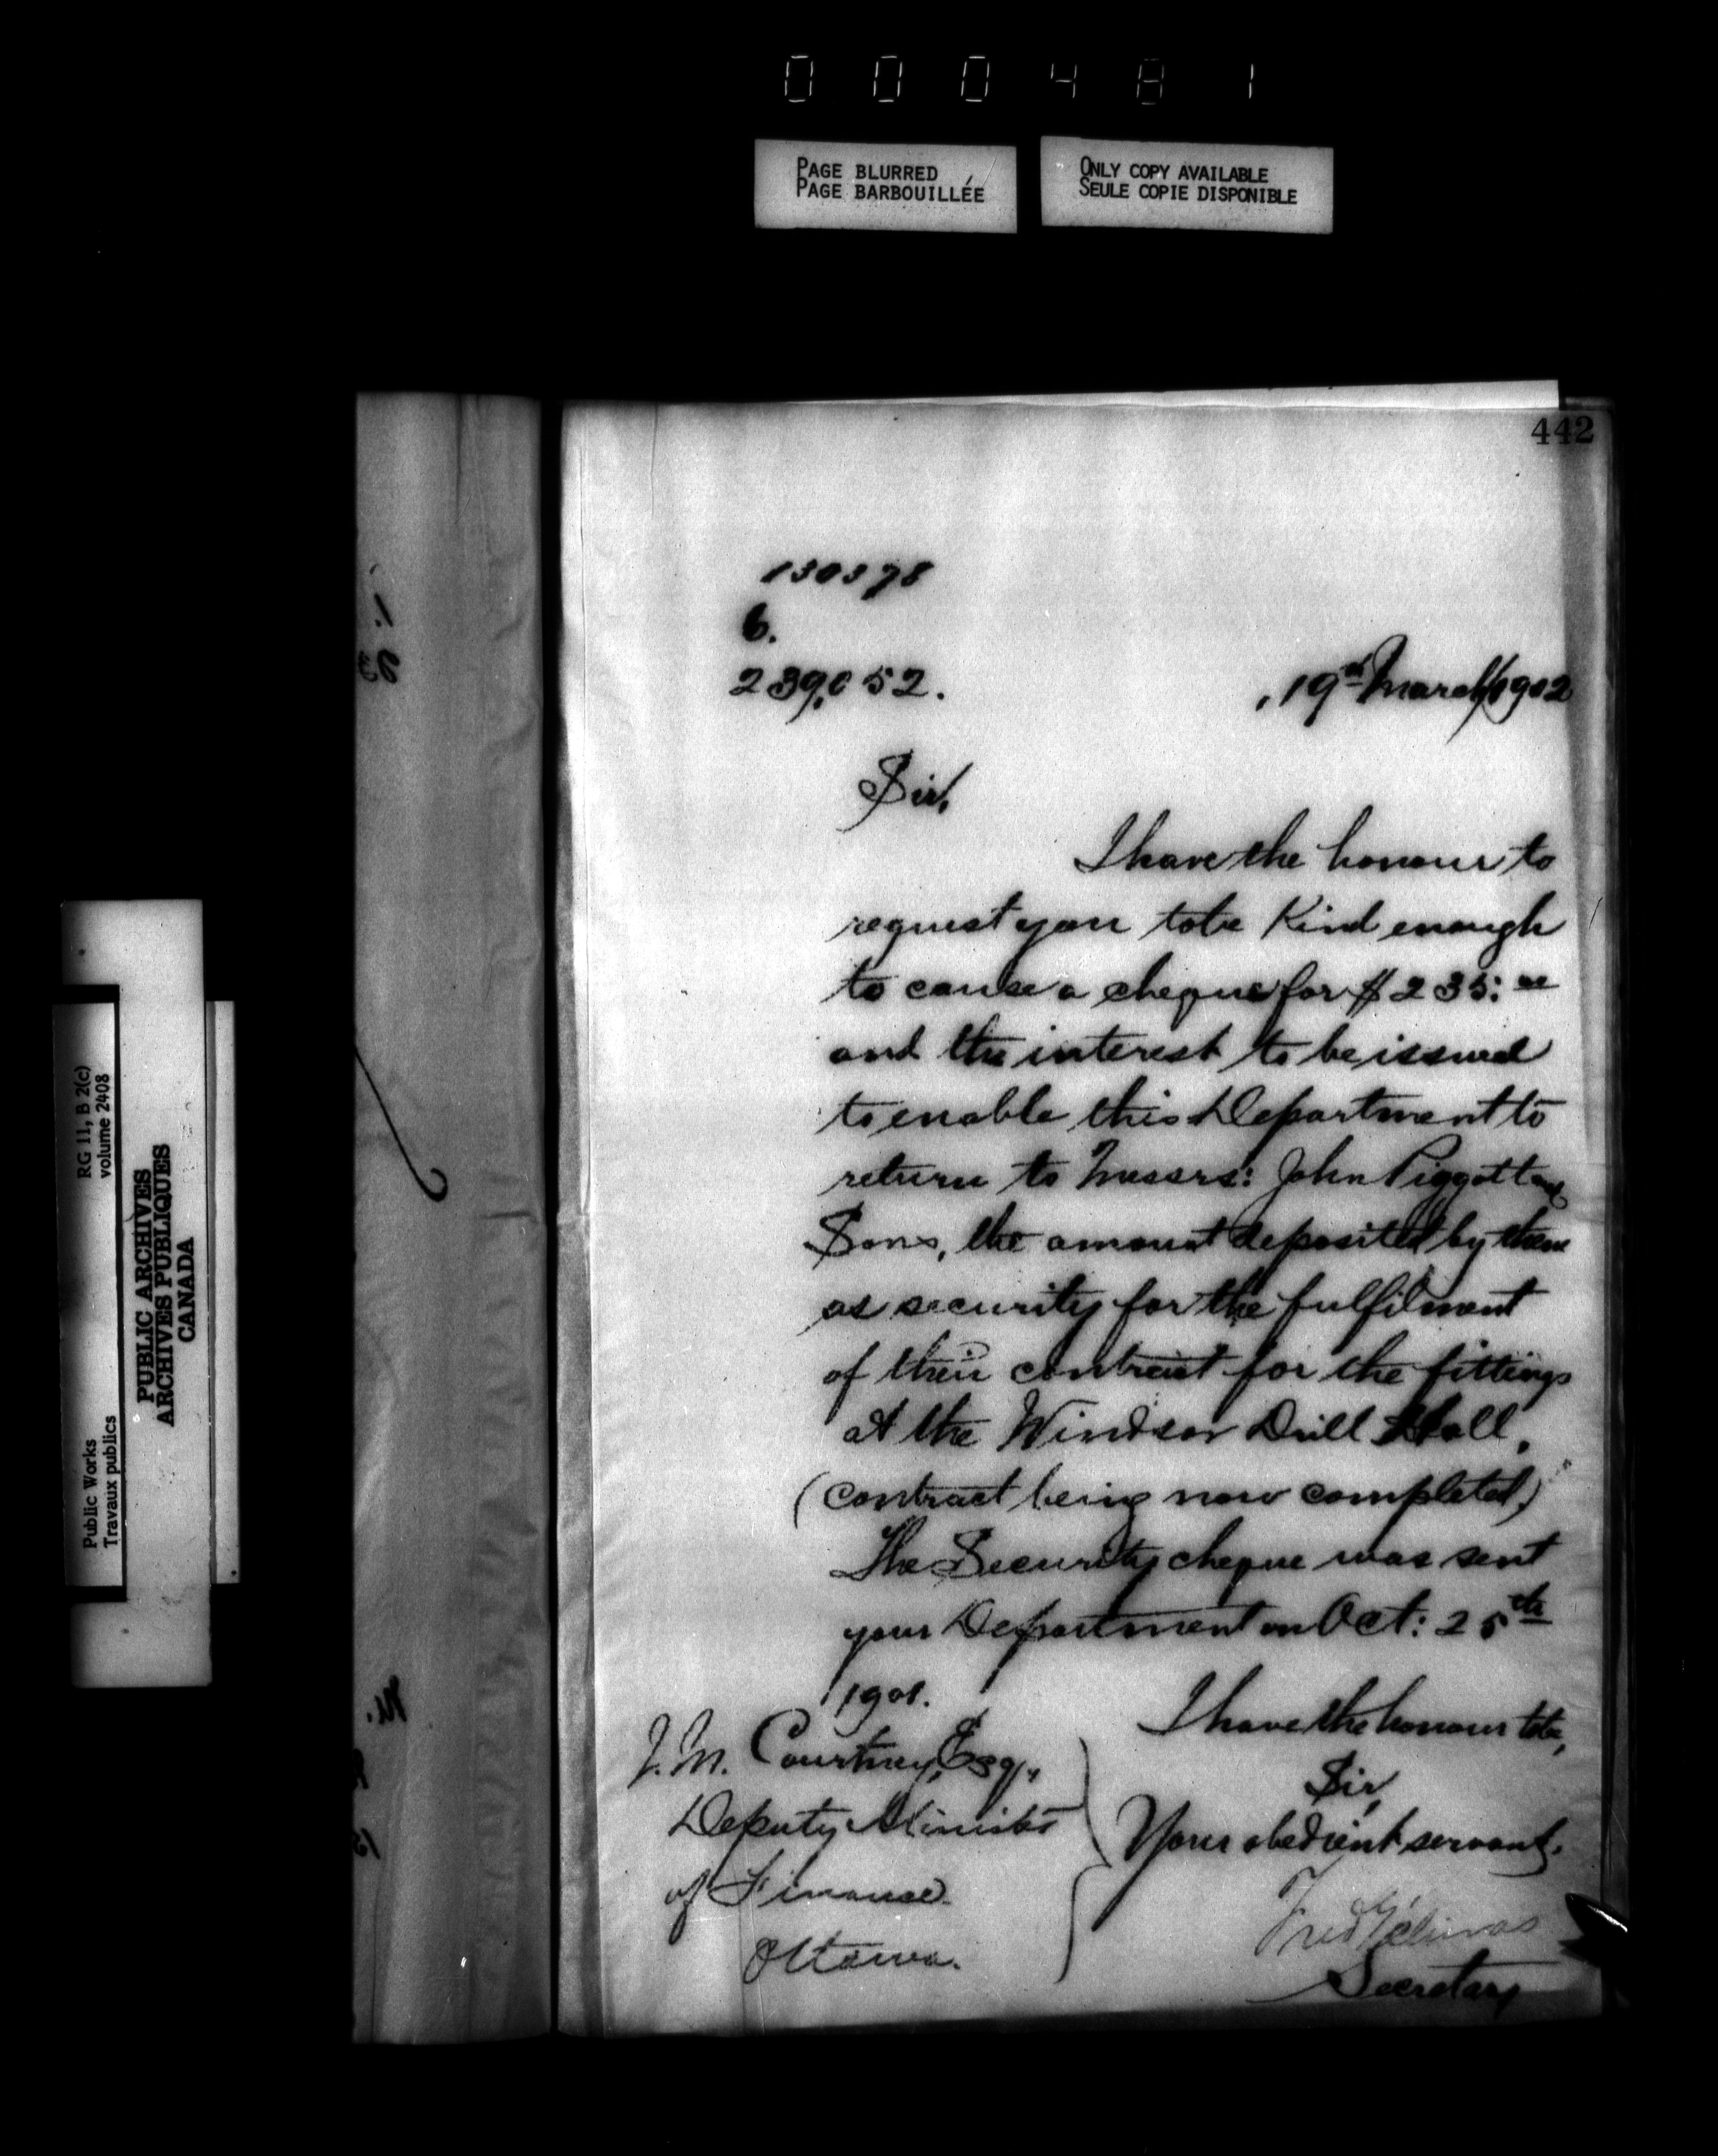 000481
PAGE BLURRED
PAGE BARBOUILLÉE
ONLY COPY AVAILABLE
SEULE COPIE DISPONIBLE
442
130378
6.
239,052.
19th March 1902
Sir,
I have the honour to
request you to be Kind enough
to cause a cheque for $235.00
and the interest to be issued
to enable this Department to
return to Messrs: John Piggott and
Sons, the amount deposited by them
as security for the fulfilment
of their contract for the fittings
at the Windsor Drill Hall,
(contract being now completed.)
The Security cheque was sent
your Department on Oct: 25th
1901.
I have the honour to be,
Sir,
Your obedient servant,
Fred Gélinas
Secretary
J. M. Courtney, Esq.,
Deputy Minister
of Finance.
Ottawa.
RG 11, B 2(c)
volume 2408
Public Works
Travaux publics
PUBLIC ARCHIVES
ARCHIVES PUBLIQUES
CANADA